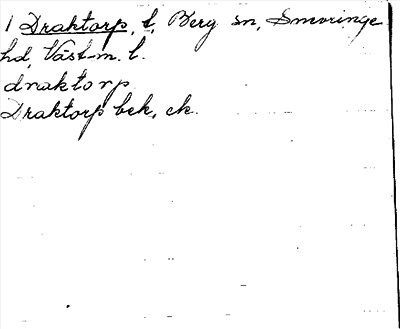 1 Draktorp, t, Berg sn, Snevringe
hd, Västm. l.
draktorp
Draktorp bek, ek.